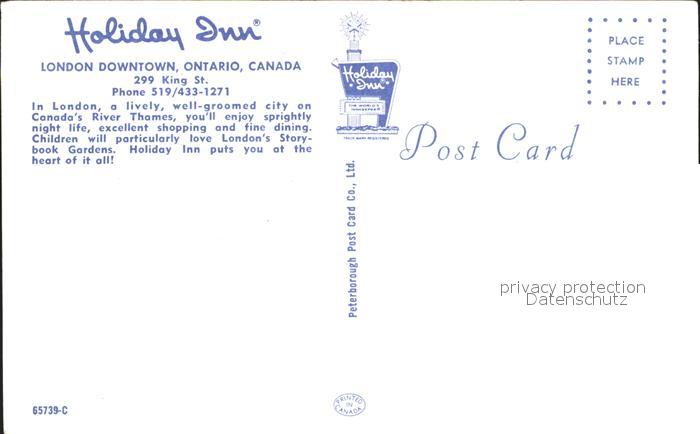 Holiday Inn®
LONDON DOWNTOWN, ONTARIO, CANADA
299 King St.
Phone 519/433-1271
In London, a lively, well-groomed city on
Canada's River Thames, you'll enjoy sprightly
night life, excellent shopping and fine dining.
Children will particularly love London's Story-
book Gardens. Holiday Inn puts you at the
heart of it all!
Holiday
Inn®
THE WORLD'S
INNKEEPER
TRADE MARK REGISTERED
PLACE
STAMP
HERE
Post Card
Peterborough Post Card Co., Ltd.
privacy protection
Datenschutz
65739-C
PRINTED
IN
CANADA